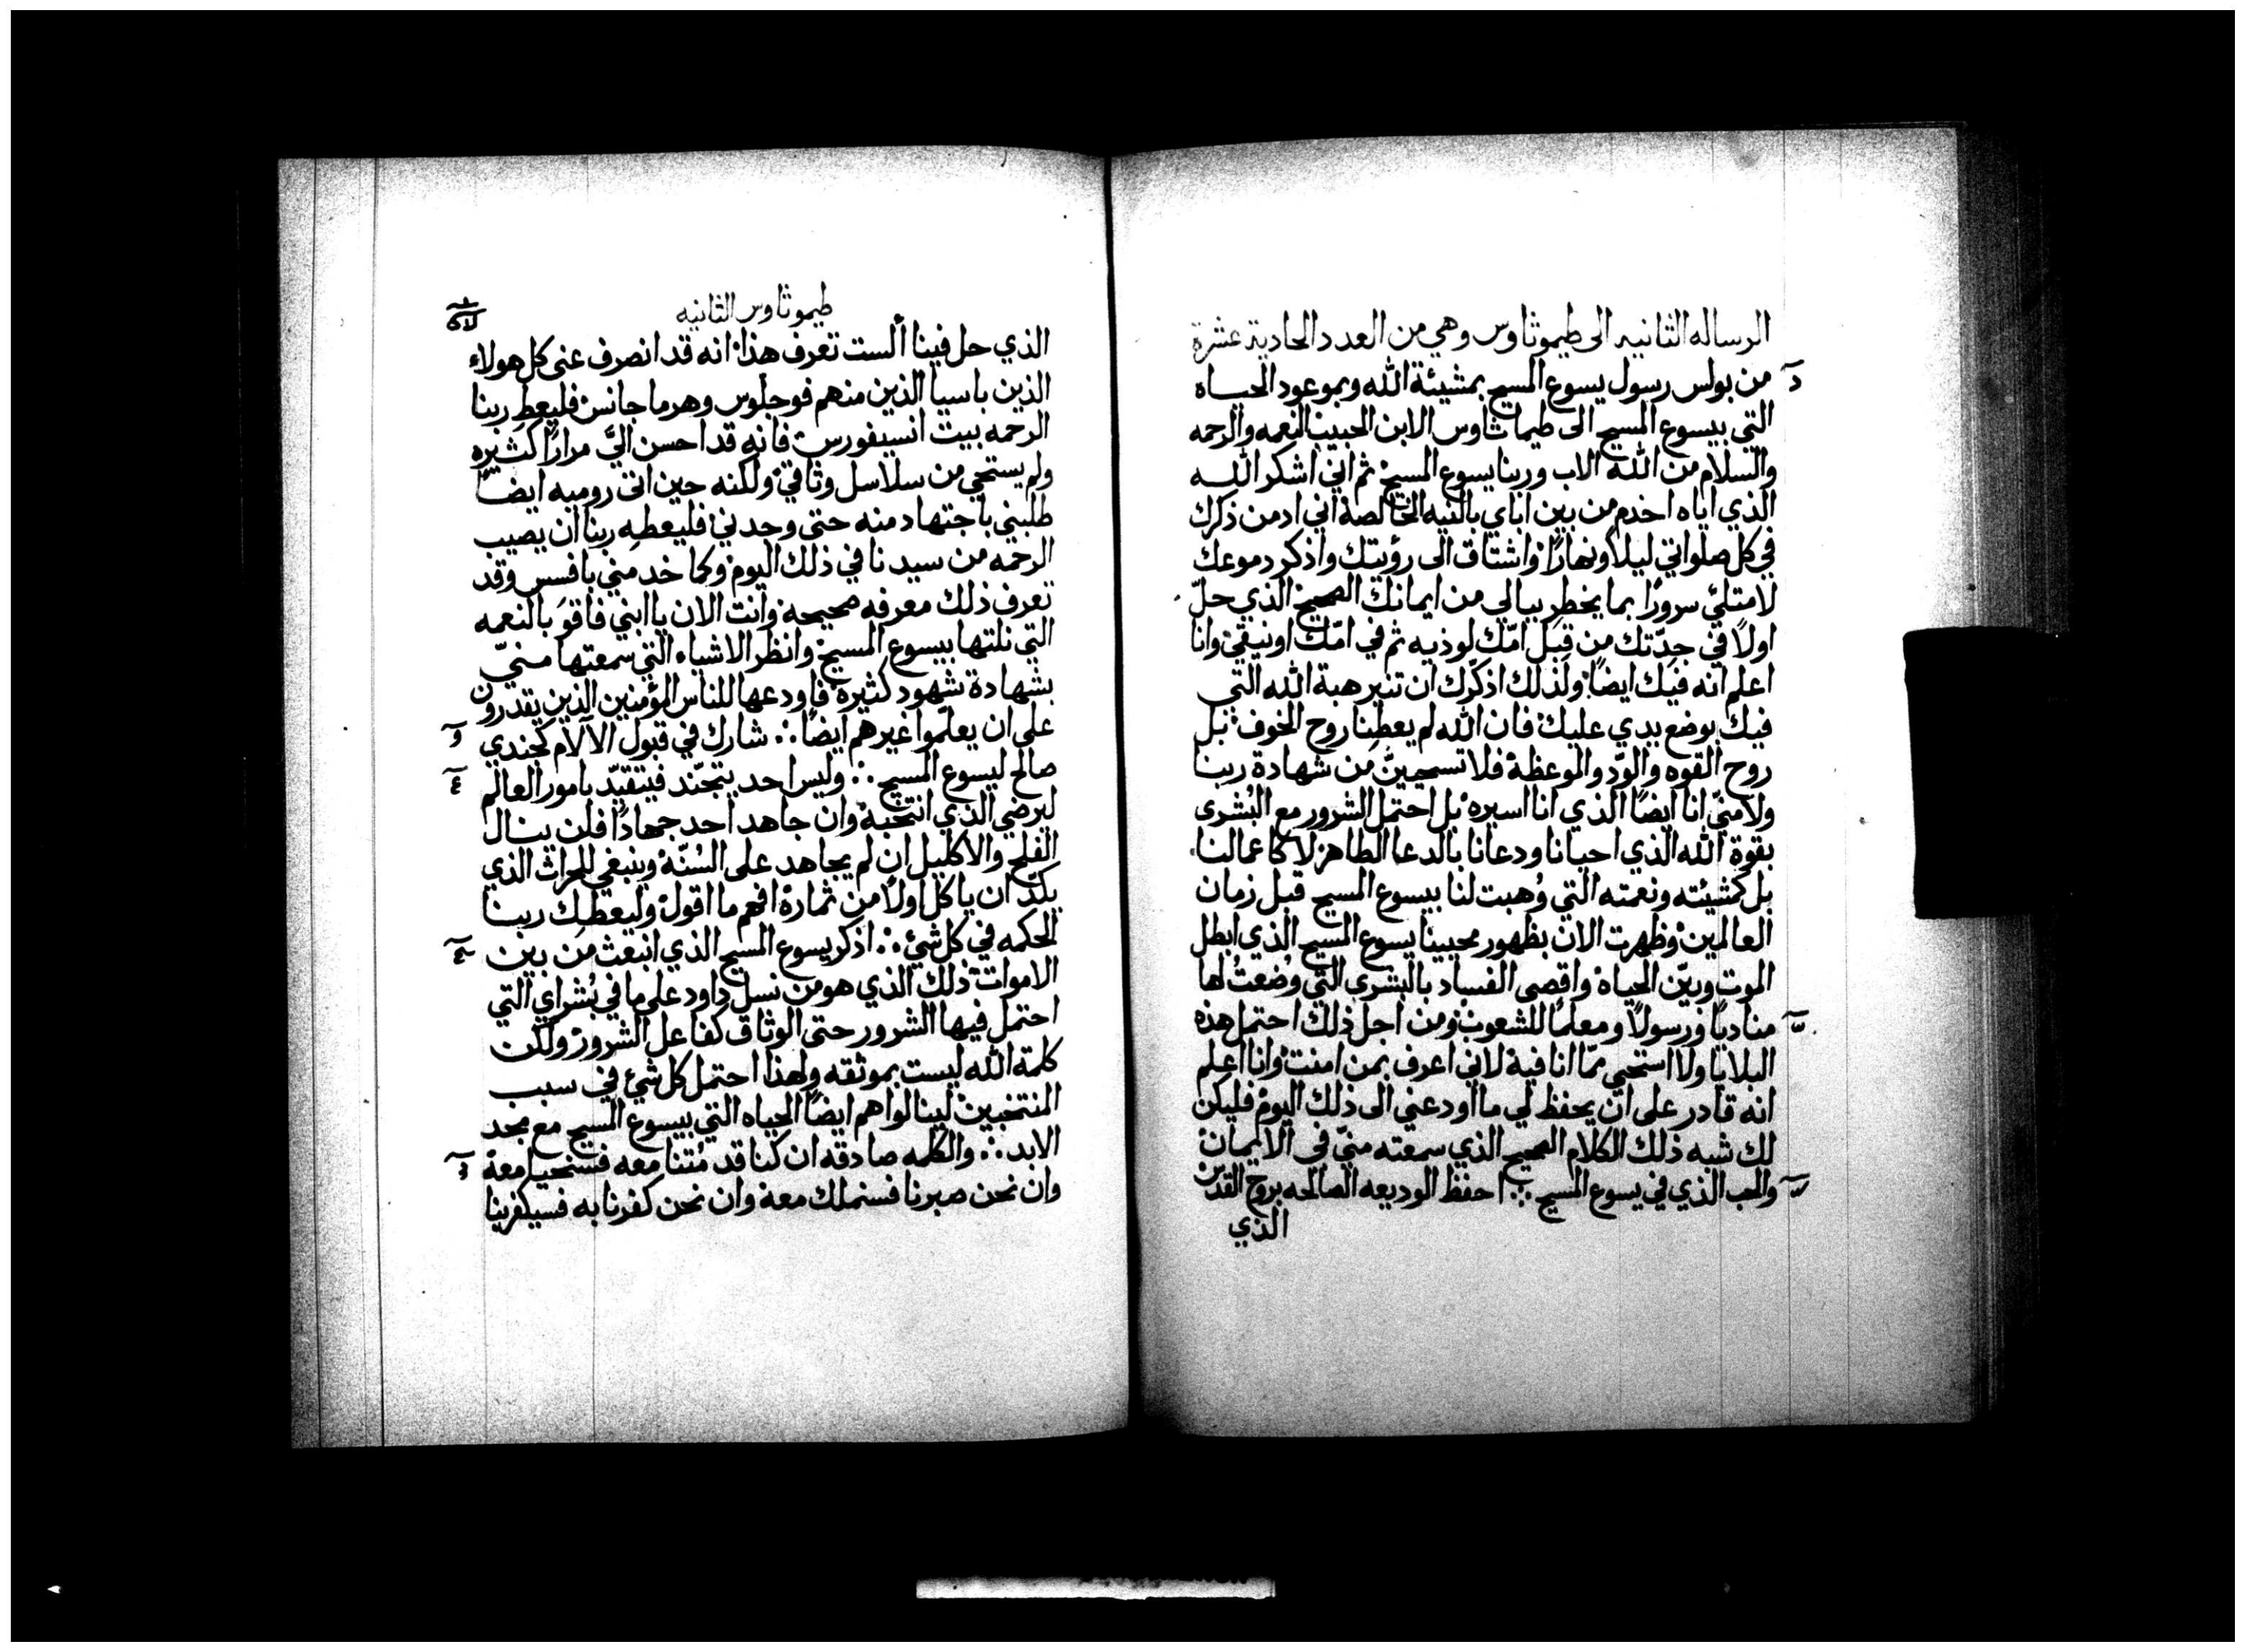 الرساله الثانيه الى طيموثاوس وهي من العدد الحادية عشرة
من بولس رسول يسوع المسيح بمشيئة الله وبموعود الحياه
التي بيسوع المسيح الى طيماثاوس الابن الحبيب النعمه والرحمه
والسلام من الله الاب وربنا يسوع المسيح ثم اني اشكر الله
الذي اياه اخدم من بين اباي بالنيه الخالصه اني ادمن ذكرك
في كل صلواتي ليلاً ونهارًا واشتاق الى رؤيتك واذكر دموعك
لامتلئ سرورًا بما يخطر ببالي من ايمانك الصحيح الذي حلّ
اولاً في جدّتك من قبل امّك لوذيه ثم في امّك اونيقي وانا
اعلم انه فيك ايضًا ولذلك اذكّرك ان تنير هبة الله التي
فيك بوضع يدي عليك فان الله لم يعطنا روح الخوف بل
روح القوه والودّ والموعظة فلا تستحيينَّ من شهادة ربنا
ولا منّي انا ايضًا الذي انا اسيره بل احتمل الشرور مع البُشرى
بقوة الله الذي احيانا ودعانا بالدعا الطاهر لا كاعمالنا
بل كمشيئته ونعمته التي وُهبت لنا بيسوع المسيح قبل زمان
العالمين وظهرت الان بظهور محيينا يسوع المسيح الذي ابطل
الموت وبيّن الحياه واقصى الفساد بالبشرى التي وُضعتُ لها
مناديًا ورسولاً ومعلمًا للشعوب ومن اجل ذلك احتمل هذه
البلايا ولا استحي ممّا انا فيه لاني اعرف بمن امنت وانا اعلم
انه قادر على ان يحفظ لي ما اودعني الى ذلك اليوم فليكن
لك شبه ذلك الكلام الصحيح الذي سمعته منّي في الايمان
والحب الذي في يسوع المسيح ∴ احفظ الوديعه الصالحه بروح القدس
الذي
طيموثاوس الثانيه
الذي حل فينا ألست تعرف هذا انه قد انصرف عني كل هولاء
الذين باسيا الذين منهم فوجلوس وهرماجانس فليعط ربنا
الرحمه بيت انسيفورس فانه قد احسن اليَّ مرارًا كثيره
ولم يستحي من سلاسل وثاقي ولكنه حين اتى روميه ايضًا
طلبني باجتهاد منه حتى وجدني فليعطه ربنا ان يصيب
الرحمه من سيدنا في ذلك اليوم وكما خدمني بافسس وقد
تعرف ذلك معرفه صحيحة وانت الان يا ابني فاقوَ بالنعمه
التي نلتها بيسوع المسيح وانظر الاشياء التي سمعتها منيّ
بشهادة شهود كثيرة فاودعها للناس المؤمنين الذين يقدرون
على ان يعلّموا غيرهم ايضًا ∴ شارك في قبول الآلام كجندي
صالح ليسوع المسيح ∴ وليس احد يتجنّد فيتقيّد بامور العالم
ليرضي الذي انتخبة وان جاهد احد جهادًا فلن ينال
الفلح والاكليل ان لم يجاهد على السُنّة وينبغي للحراث الذي
يكدّ ان ياكل اولاً من ثماره افهم ما اقول وليعطيك ربنا
الحكمه في كل شيء ∴ اذكر يسوع المسيح الذي انبعث من بين
الاموات ذلك الذي هو من نسل داود على ما في بُشراي التي
احتمل فيها الشرور حتى الوثاق كفاعل الشرور ولكن
كلمة الله ليست بموثقه ولهذا احتمل كل شيء في سبب
المنتخبين لينالوا هم ايضًا الحياه التي بيسوع المسيح مع مجد
الابد ∴ والكلمه صادقه ان كنا قد مُتنا معه فسنحيا معة
وان نحن صبرنا فسنملك معة وان نحن كفرنا به فسيكفر بنا